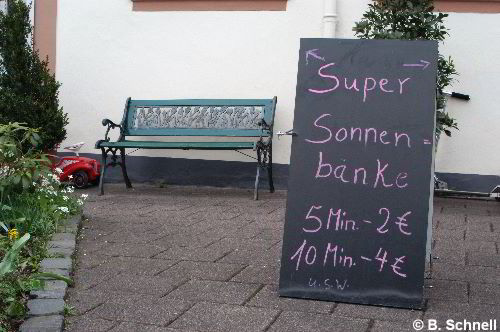 Super
Sonnen=
bänke
5 Min.-2€
10 Min.-4€
u.s.w.
© B. Schnell